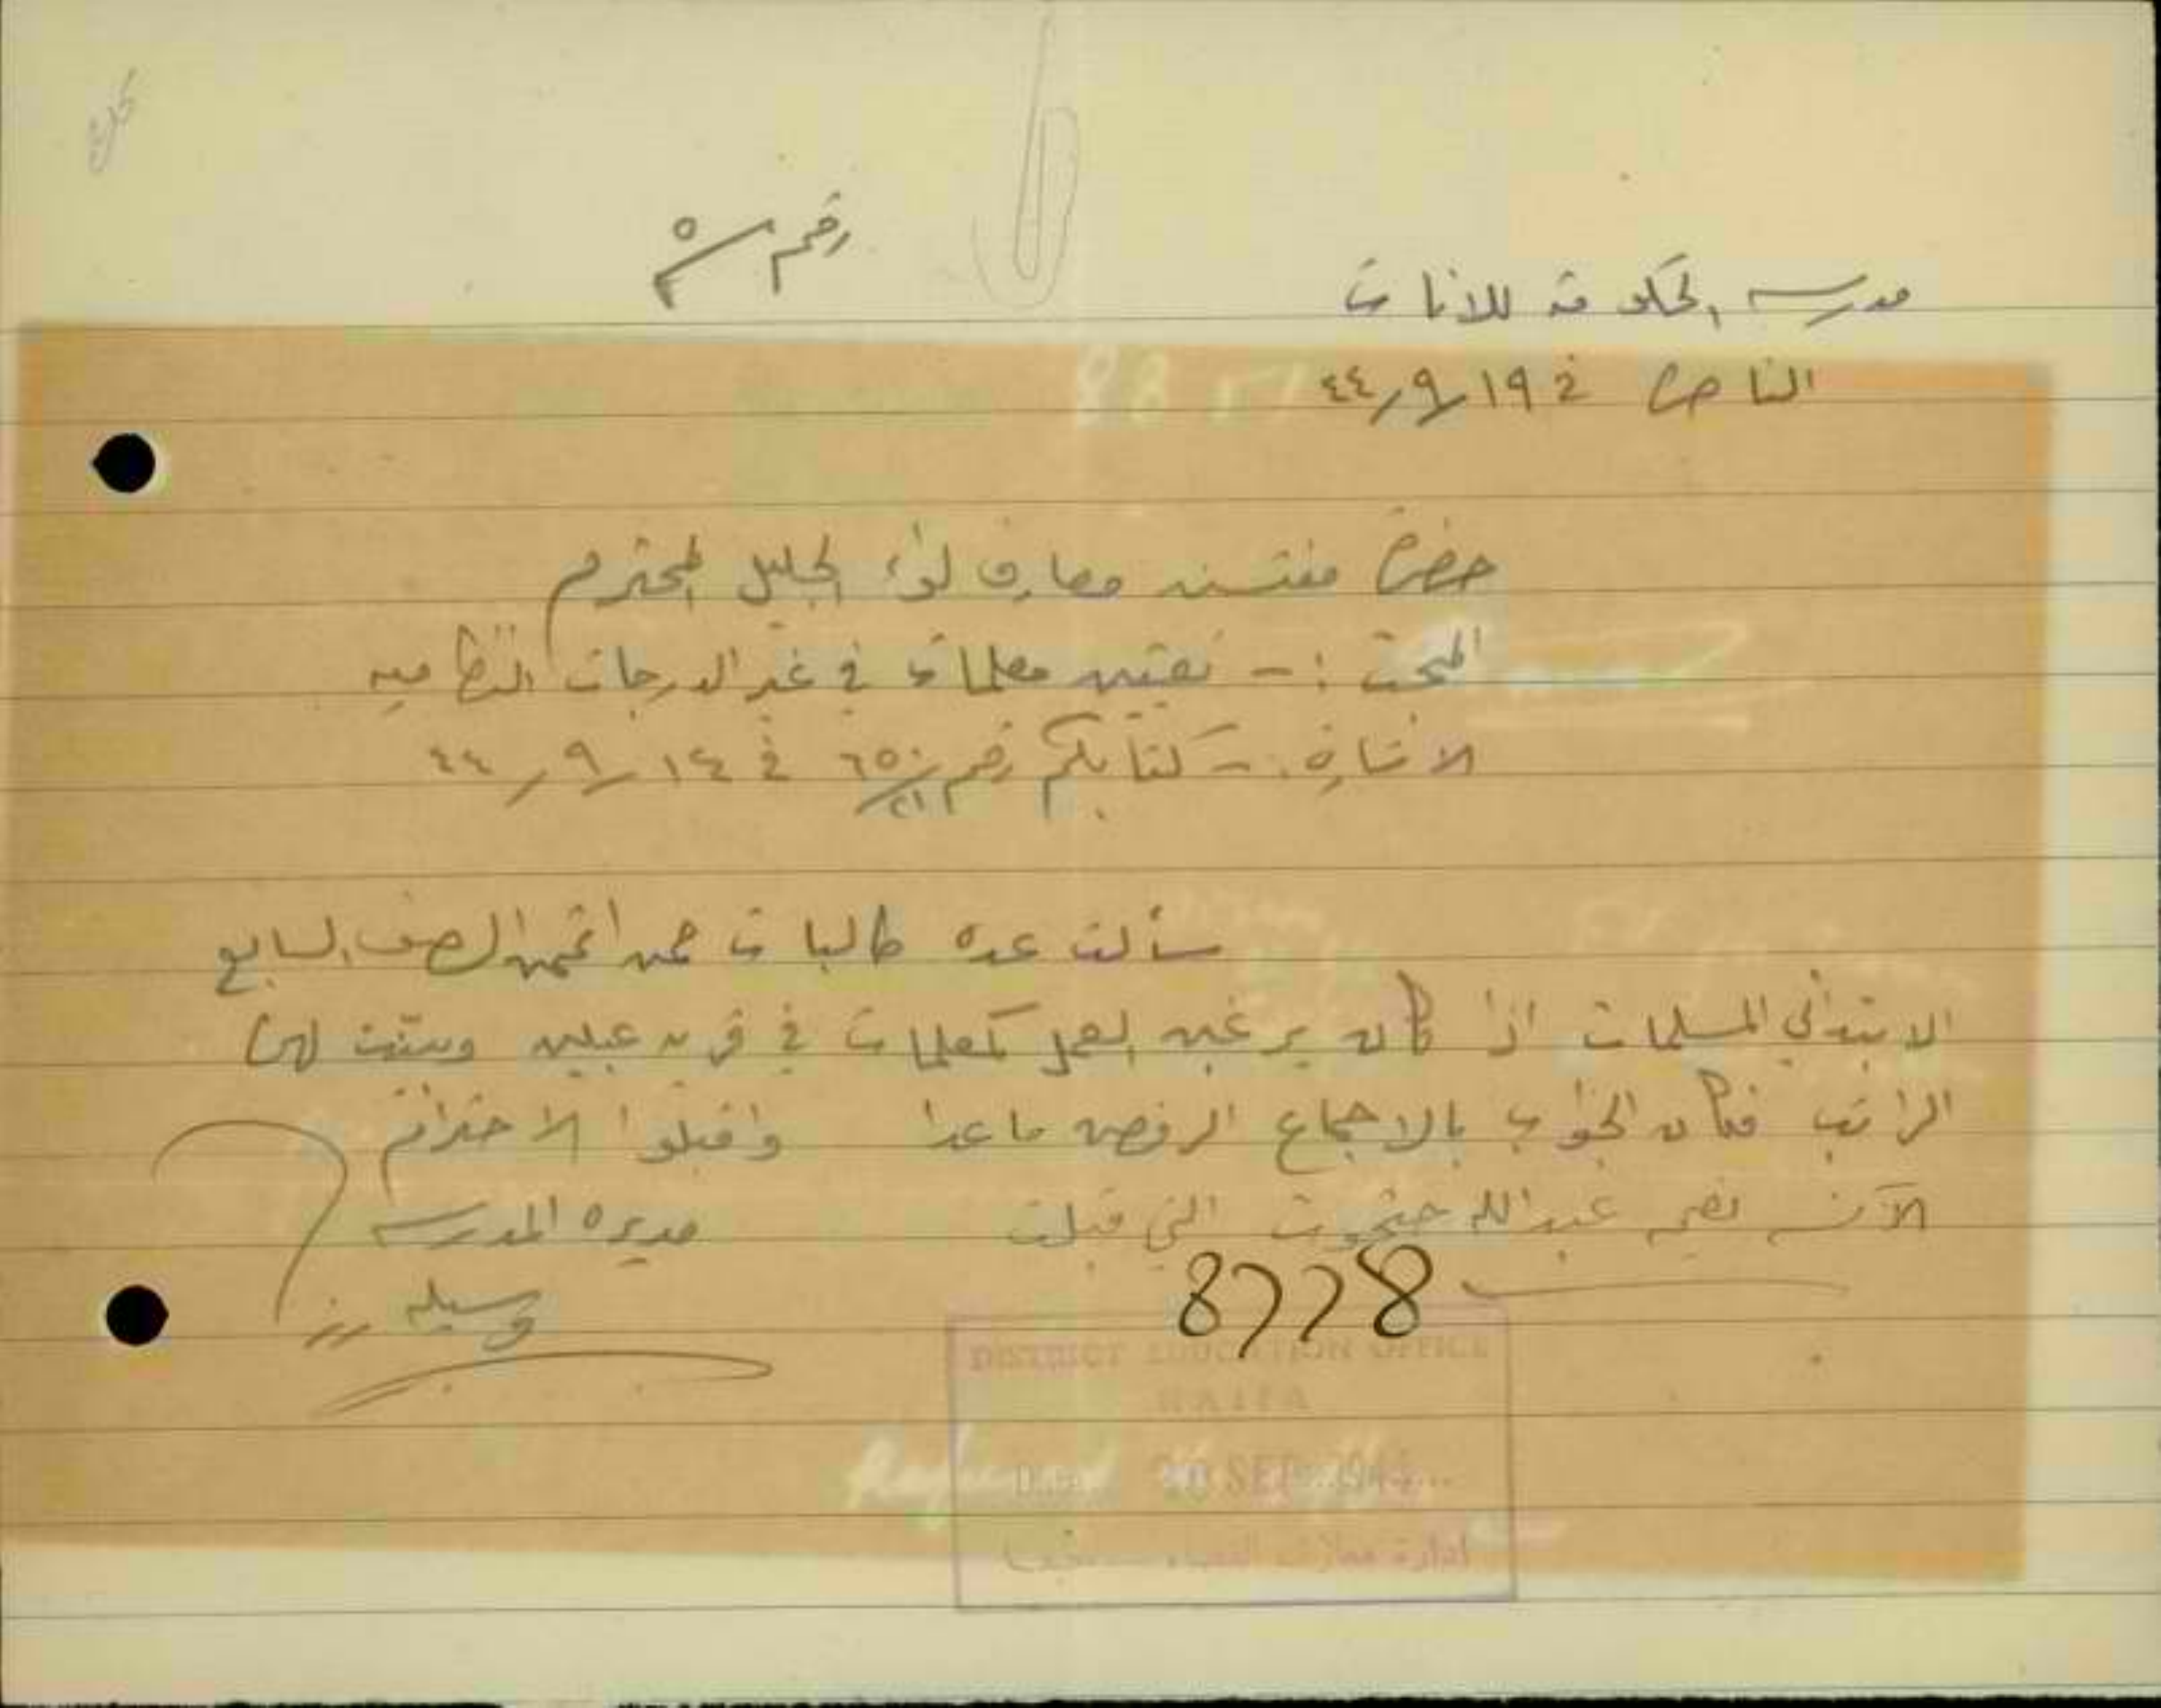 رقم ٥
مدرسة الحكومة للاناث
الناصرة في ١٩/٩/٤٤
حضرة مفتش معارف لواء الجليل المحترم
المبحث :- تعيين معلمات في غير الدرجات النظاميه
الاشارة :- كتابكم رقم ٦٥٠/٢١ في ١٤/٩/٤٤
سألت عدة طالبات ممن انهين الصف السابع
الابتدائي المسلمات اذا كان يرغبن العمل كمعلمات في قرية عبلين وبينت لهن
الراتب فكان الجواب بالاجماع الرفض ما عدا
الآنسه عبدالله التي قبلت
واقبلوا الاحترام
مديرة المدرسه
وسيله
8778
DISTRICT EDUCATION OFFICE
HAIFA
Date 20 SEP 1944
ادارة معارف اللواء حيفا